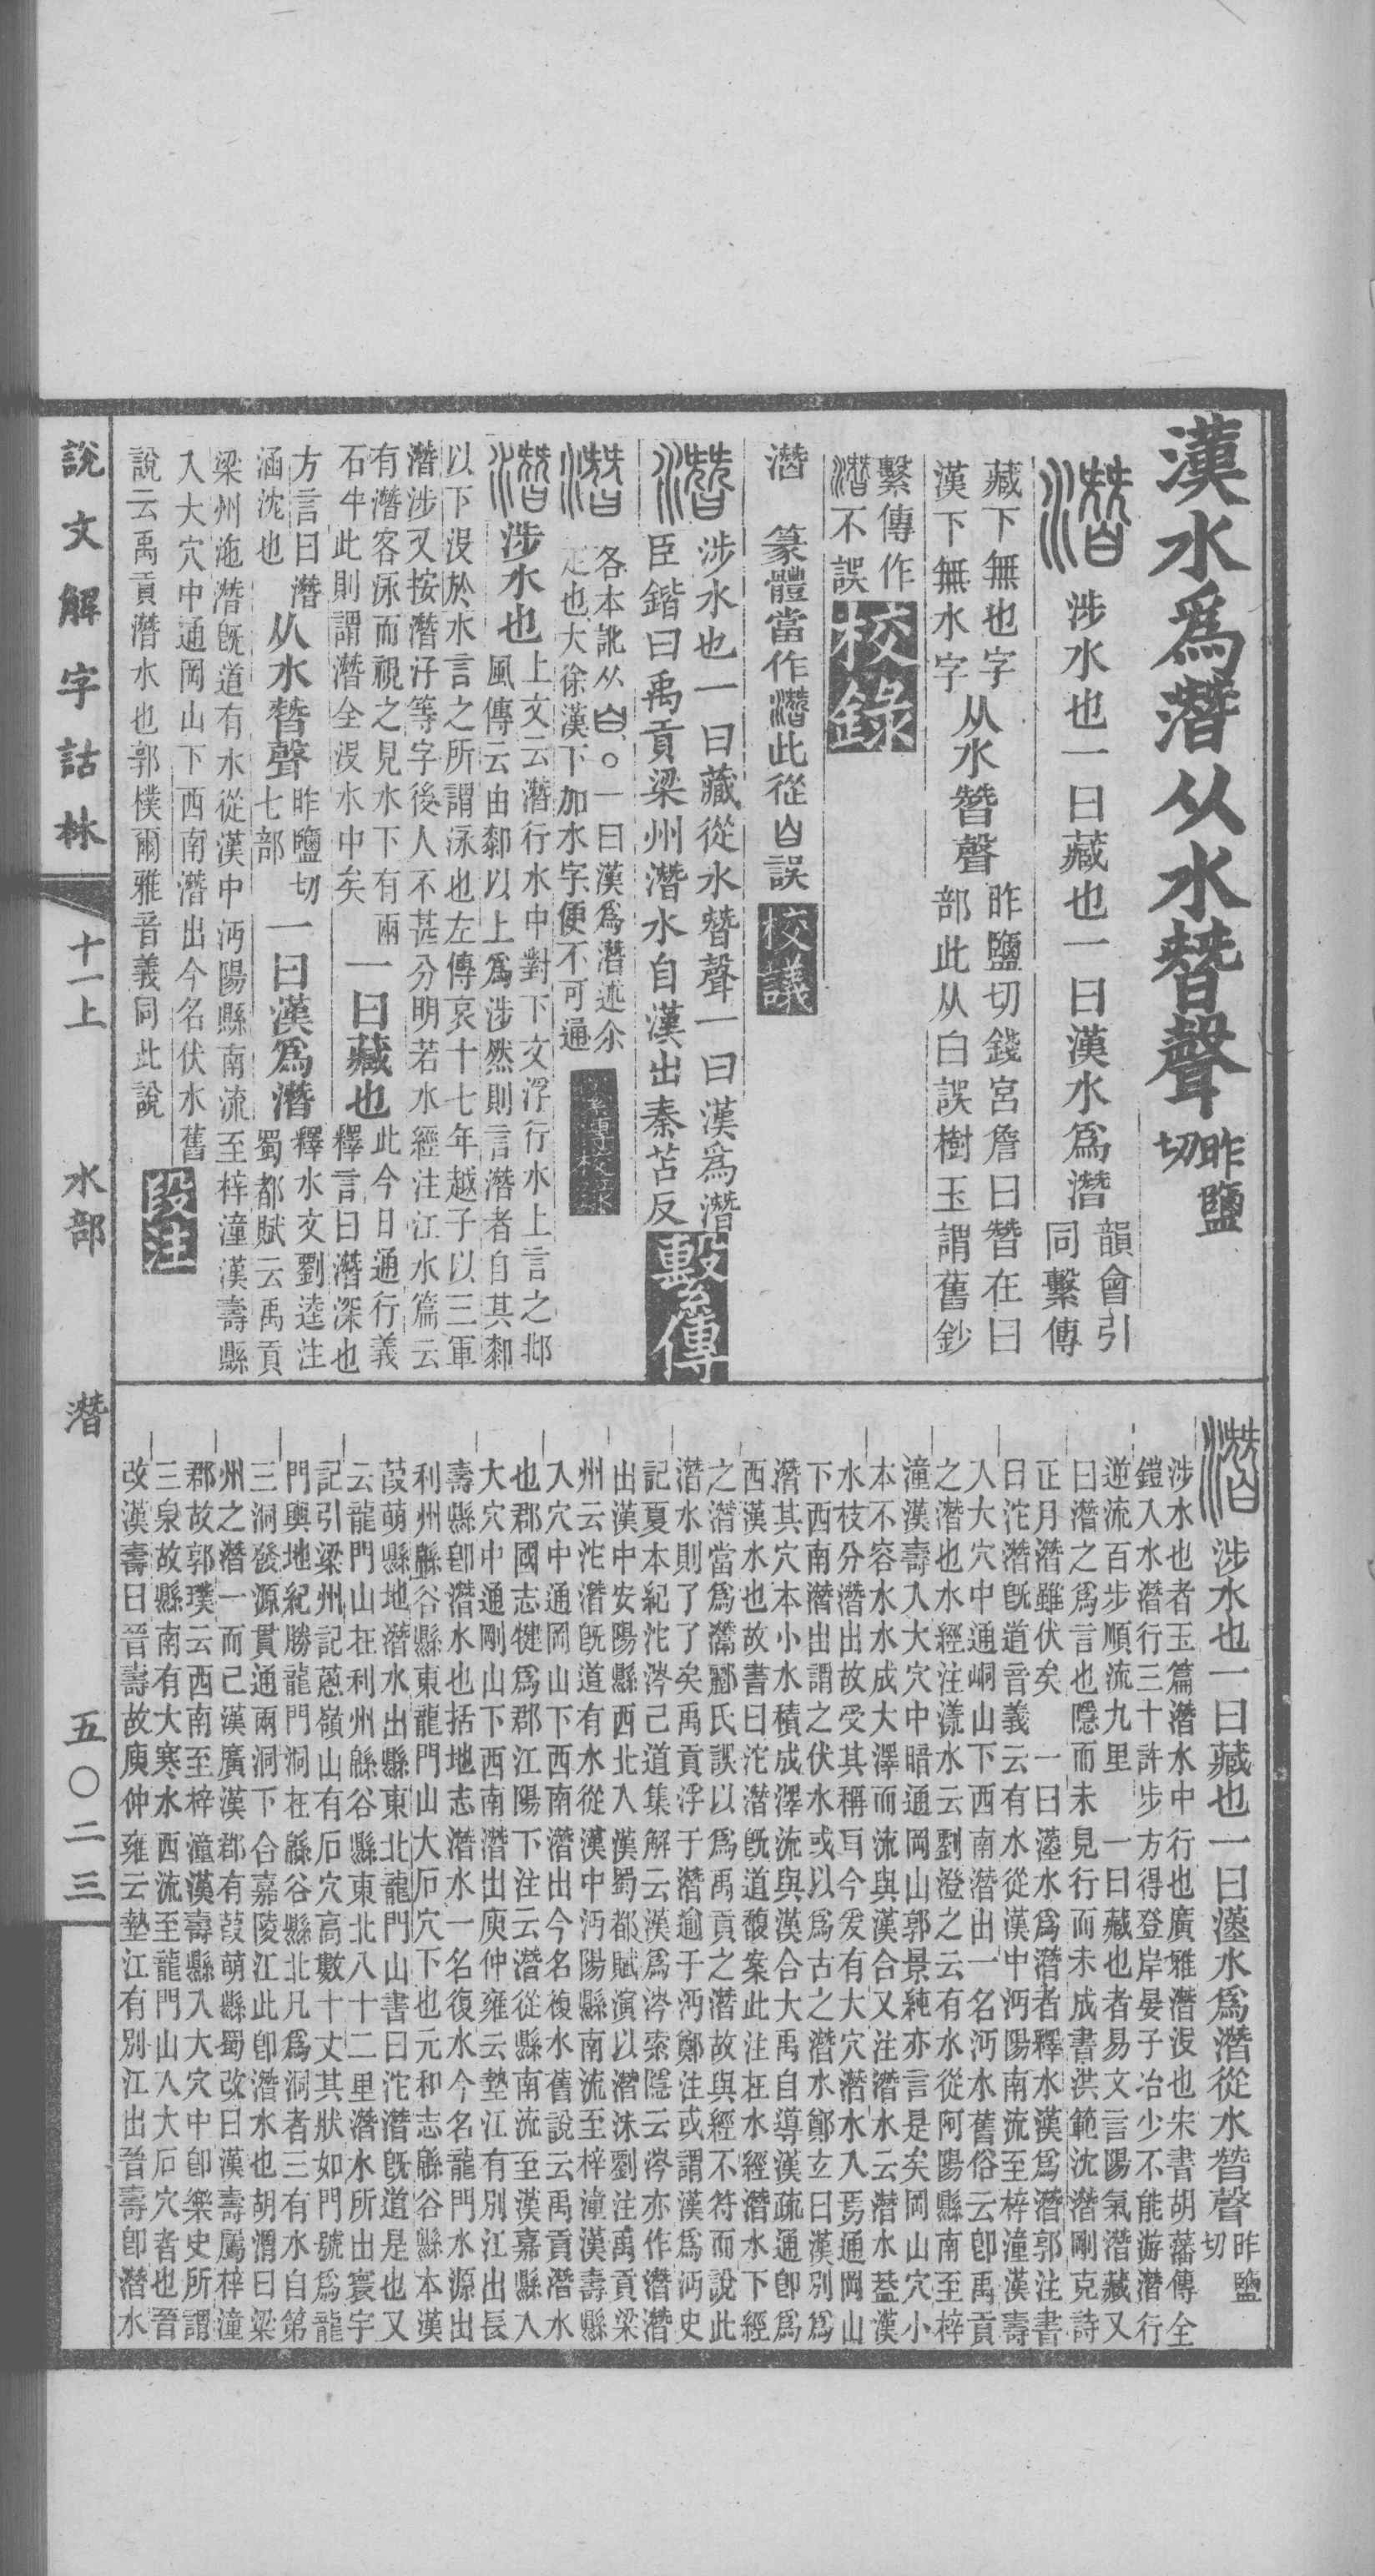 漢水爲潛从水朁聲昨鹽切
涉水也一曰藏也一曰漢水爲潛韻會引同繫傳
藏下無也字漢下無水字从水朁聲昨鹽切錢宮詹曰朁在曰部此从白誤樹玉謂舊鈔
繫傳作潛不誤校錄
潛 篆體當作潛此從白誤校議
涉水也一曰藏從水朁聲一曰漢爲潛
臣鍇曰禹貢梁州潛水自漢出秦苫反繫傳
各本訛从白○一曰漢爲潛述尒
疋也大徐漢下加水字便不可通繫傳校錄
涉水也上文云潛行水中對下文浮行水上言之邶
風傳云由厀以上爲涉然則言潛者自其厀
以下沒於水言之所謂泳也左傳哀十七年越子以三軍
潛涉又按潛汓等字後人不甚分明若水經注江水篇云
有潛客泳而視之見水下有兩
石牛此則謂潛全沒水中矣一曰藏也此今日通行義
釋言曰潛深也
方言曰潛
涵沈也从水朁聲昨鹽切
七部一曰漢爲潛釋水文劉逵注
蜀都賦云禹貢
梁州沱潛旣道有水從漢中沔陽縣南流至梓潼漢壽縣
入大穴中通岡山下西南潛出今名伏水舊
說云禹貢潛水也郭樸爾雅音義同此說段注
涉水也一曰藏也一曰漢水爲潛從水朁聲昨鹽切
涉水也者玉篇潛水中行也廣雅潛沒也宋書胡藩傳全
鎧入水潛行三十許步方得登岸晏子冶少不能游潛行
逆流百步順流九里 一曰藏也者易文言陽氣潛藏又
曰潛之爲言也隱而未見行而未成書洪範沈潛剛克詩
正月潛雖伏矣 一曰漢水爲潛者釋水漢爲潛郭注書
曰沱潛旣道音義云有水從漢中沔陽南流至梓潼漢壽
入大穴中通峒山下西南潛出一名沔水舊俗云卽禹貢
之潛也水經注漾水云劉澄之云有水從阿陽縣南至梓
潼漢壽入大穴中暗通岡山郭景純亦言是矣岡山穴小
本不容水水成大澤而流與漢合又注潛水云潛水蓋漢
水枝分潛出故受其稱耳今爰有大穴潛水入焉通岡山
下西南潛出謂之伏水或以爲古之潛水鄭玄曰漢別爲
潛其穴本小水積成澤流與漢合大禹自導漢疏通卽爲
西漢水也故書曰沱潛旣道馥案此注在水經潛水下經
之潛當爲灊酈氏誤以爲禹貢之潛故與經不符而說此
潛水則了了矣禹貢浮于潛逾于沔鄭注或謂漢爲沔史
記夏本紀沱涔已道集解云漢爲涔索隱云涔亦作潛潛
出漢中安陽縣西北入漢蜀都賦演以潛沬劉注禹貢梁
州云沱潛旣道有水從漢中沔陽縣南流至梓潼漢壽縣
入穴中通岡山下西南潛出今名複水舊說云禹貢潛水
也郡國志犍爲郡江陽下注云潛從縣南流至漢嘉縣入
大穴中通剛山下西南潛出庾仲雍云墊江有別江出長
壽縣卽潛水也括地志潛水一名復水今名龍門水源出
利州緜谷縣東龍門山大石穴下也元和志緜谷縣本漢
葭萌縣地潛水出縣東北龍門山書曰沱潛旣道是也又
云龍門山在利州緜谷縣東北八十二里潛水所出寰宇
記引梁州記蔥嶺山有石穴高數十丈其狀如門號爲龍
門輿地紀勝龍門洞在緜谷縣北凡爲洞者三有水自第
三洞發源貫通兩洞下合嘉陵江此卽潛水也胡渭曰梁
州之潛一而已漢廣漢郡有葭萌縣蜀改曰漢壽屬梓潼
郡故郭璞云西南至梓潼漢壽縣入大穴中卽樂史所謂
三泉故縣南有大寒水西流至龍門山入大石穴者也晉
改漢壽曰晉壽故庾仲雍云墊江有別江出晉壽卽潛水
說文解字詁林 十一上 水部 潛 五〇二三